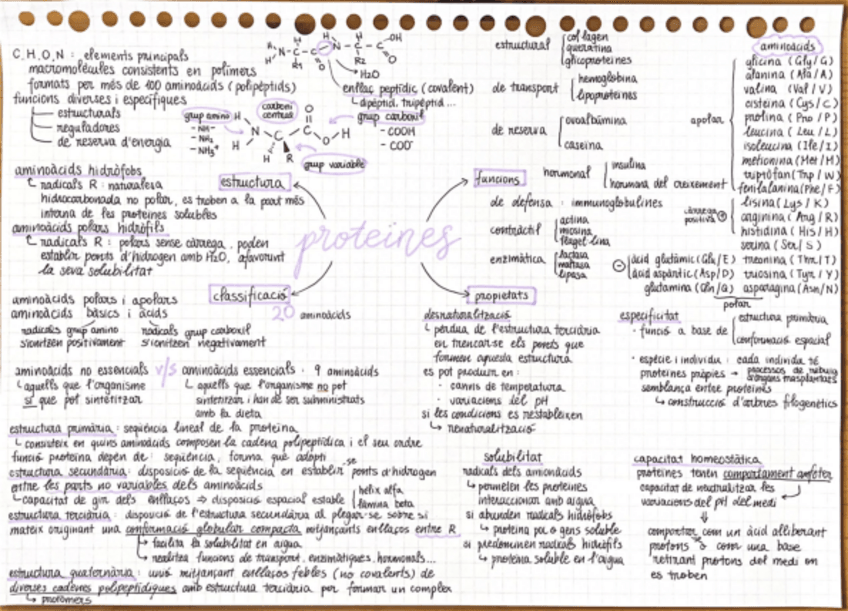 C, H, O, N : elements principals
macromolècules consistents en polímers
formats per més de 100 aminoàcids (polipèptids)
funcions diverses i específiques
estructurals
reguladores
de reserva d'energia
H₂O
enllaç peptídic (covalent)
dipèptid, tripèptid...
grup amino
-NH-
-NH₂
-NH₃⁺
carboni central
grup carboxil
-COOH
-COO⁻
grup variable
aminoàcids hidròfobs
radicals R : naturalesa
hidrocarbonada no polar, es troben a la part més
interna de les proteïnes solubles
aminoàcids polars hidròfils
radicals R : polars sense càrrega, poden
establir ponts d'hidrogen amb H₂O, afavorint
la seva solubilitat
estructura
proteïnes
classificació
20 aminoàcids
aminoàcids polars i apolars
aminoàcids bàsics i àcids
radicals grup amino
s'ionitzen positivament
radicals grup carboxil
s'ionitzen negativament
aminoàcids no essencials v/s aminoàcids essencials : 9 aminoàcids
aquells que l'organisme
sí que pot sintetitzar
aquells que l'organisme no pot
sintetitzar i han de ser subministrats
amb la dieta
estructura primària : seqüència lineal de la proteïna
consisteix en quins aminoàcids composen la cadena polipeptídica i el seu ordre
funció proteïna depèn de : seqüència, forma que adopti
estructura secundària : disposició de la seqüència en establir-se ponts d'hidrogen
entre les parts no variables dels aminoàcids
capacitat de gir dels enllaços ⇒ disposició espacial estable
hèlix alfa
làmina beta
estructura terciària : disposició de l'estructura secundària al plegar-se sobre si
mateix originant una conformació globular compacta mitjançants enllaços entre R
facilita la solubilitat en aigua
realitza funcions de transport, enzimàtiques, hormonals...
estructura quaternària : unió mitjançant enllaços febles (no covalents) de
diverses cadenes polipeptídiques amb estructura terciària per formar un complex
protòmers
funcions
estructural
col·lagen
queratina
glicoproteïnes
de transport
hemoglobina
lipoproteïnes
de reserva
ovoalbúmina
caseïna
hormonal
insulina
hormona del creixement
de defensa : immunoglobulines
contràctil
actina
miosina
flagel·lina
enzimàtica
lactasa
maltasa
lipasa
aminoàcids
apolar
glicina (Gly/G)
alanina (Ala/A)
valina (Val/V)
cisteïna (Cys/C)
prolina (Pro/P)
leucina (Leu/L)
isoleucina (Ile/I)
metionina (Met/M)
triptòfan (Trp/W)
fenilalanina (Phe/F)
càrrega positiva +
lisina (Lys/K)
arginina (Arg/R)
histidina (His/H)
serina (Ser/S)
treonina (Thr/T)
tirosina (Tyr/Y)
asparagina (Asn/N)
− àcid glutàmic (Glu/E)
àcid aspàrtic (Asp/D)
glutamina (Gln/Q)
polar
propietats
desnaturalització
pèrdua de l'estructura terciària
en trencar-se els ponts que
formen aquesta estructura
es pot produir en :
canvis de temperatura
variacions del pH
si les condicions es restableixen
renaturalització
especificitat
funció a base de
estructura primària
conformació espacial
espècie i individu : cada individu té
proteïnes pròpies → processos de rebuig
d'òrgans trasplantats
semblança entre proteïnes
construcció d'arbres filogenètics
solubilitat
radicals dels aminoàcids
permeten les proteïnes
interaccionar amb aigua
si abunden radicals hidròfobs
proteïna poc o gens soluble
si predominen radicals hidròfils
proteïna soluble en l'aigua
capacitat homeostàtica
proteïnes tenen comportament amfòter
capacitat de neutralitzar les
variacions del pH del medi
comportar com un àcid alliberant
protons o com una base
retirant protons del medi on
es troben